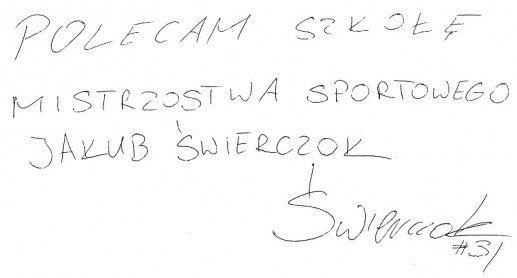 POLECAM SZKOŁĘ
MISTRZOSTWA SPORTOWEGO
JAKUB ŚWIERCZOK
Świerczok
#31